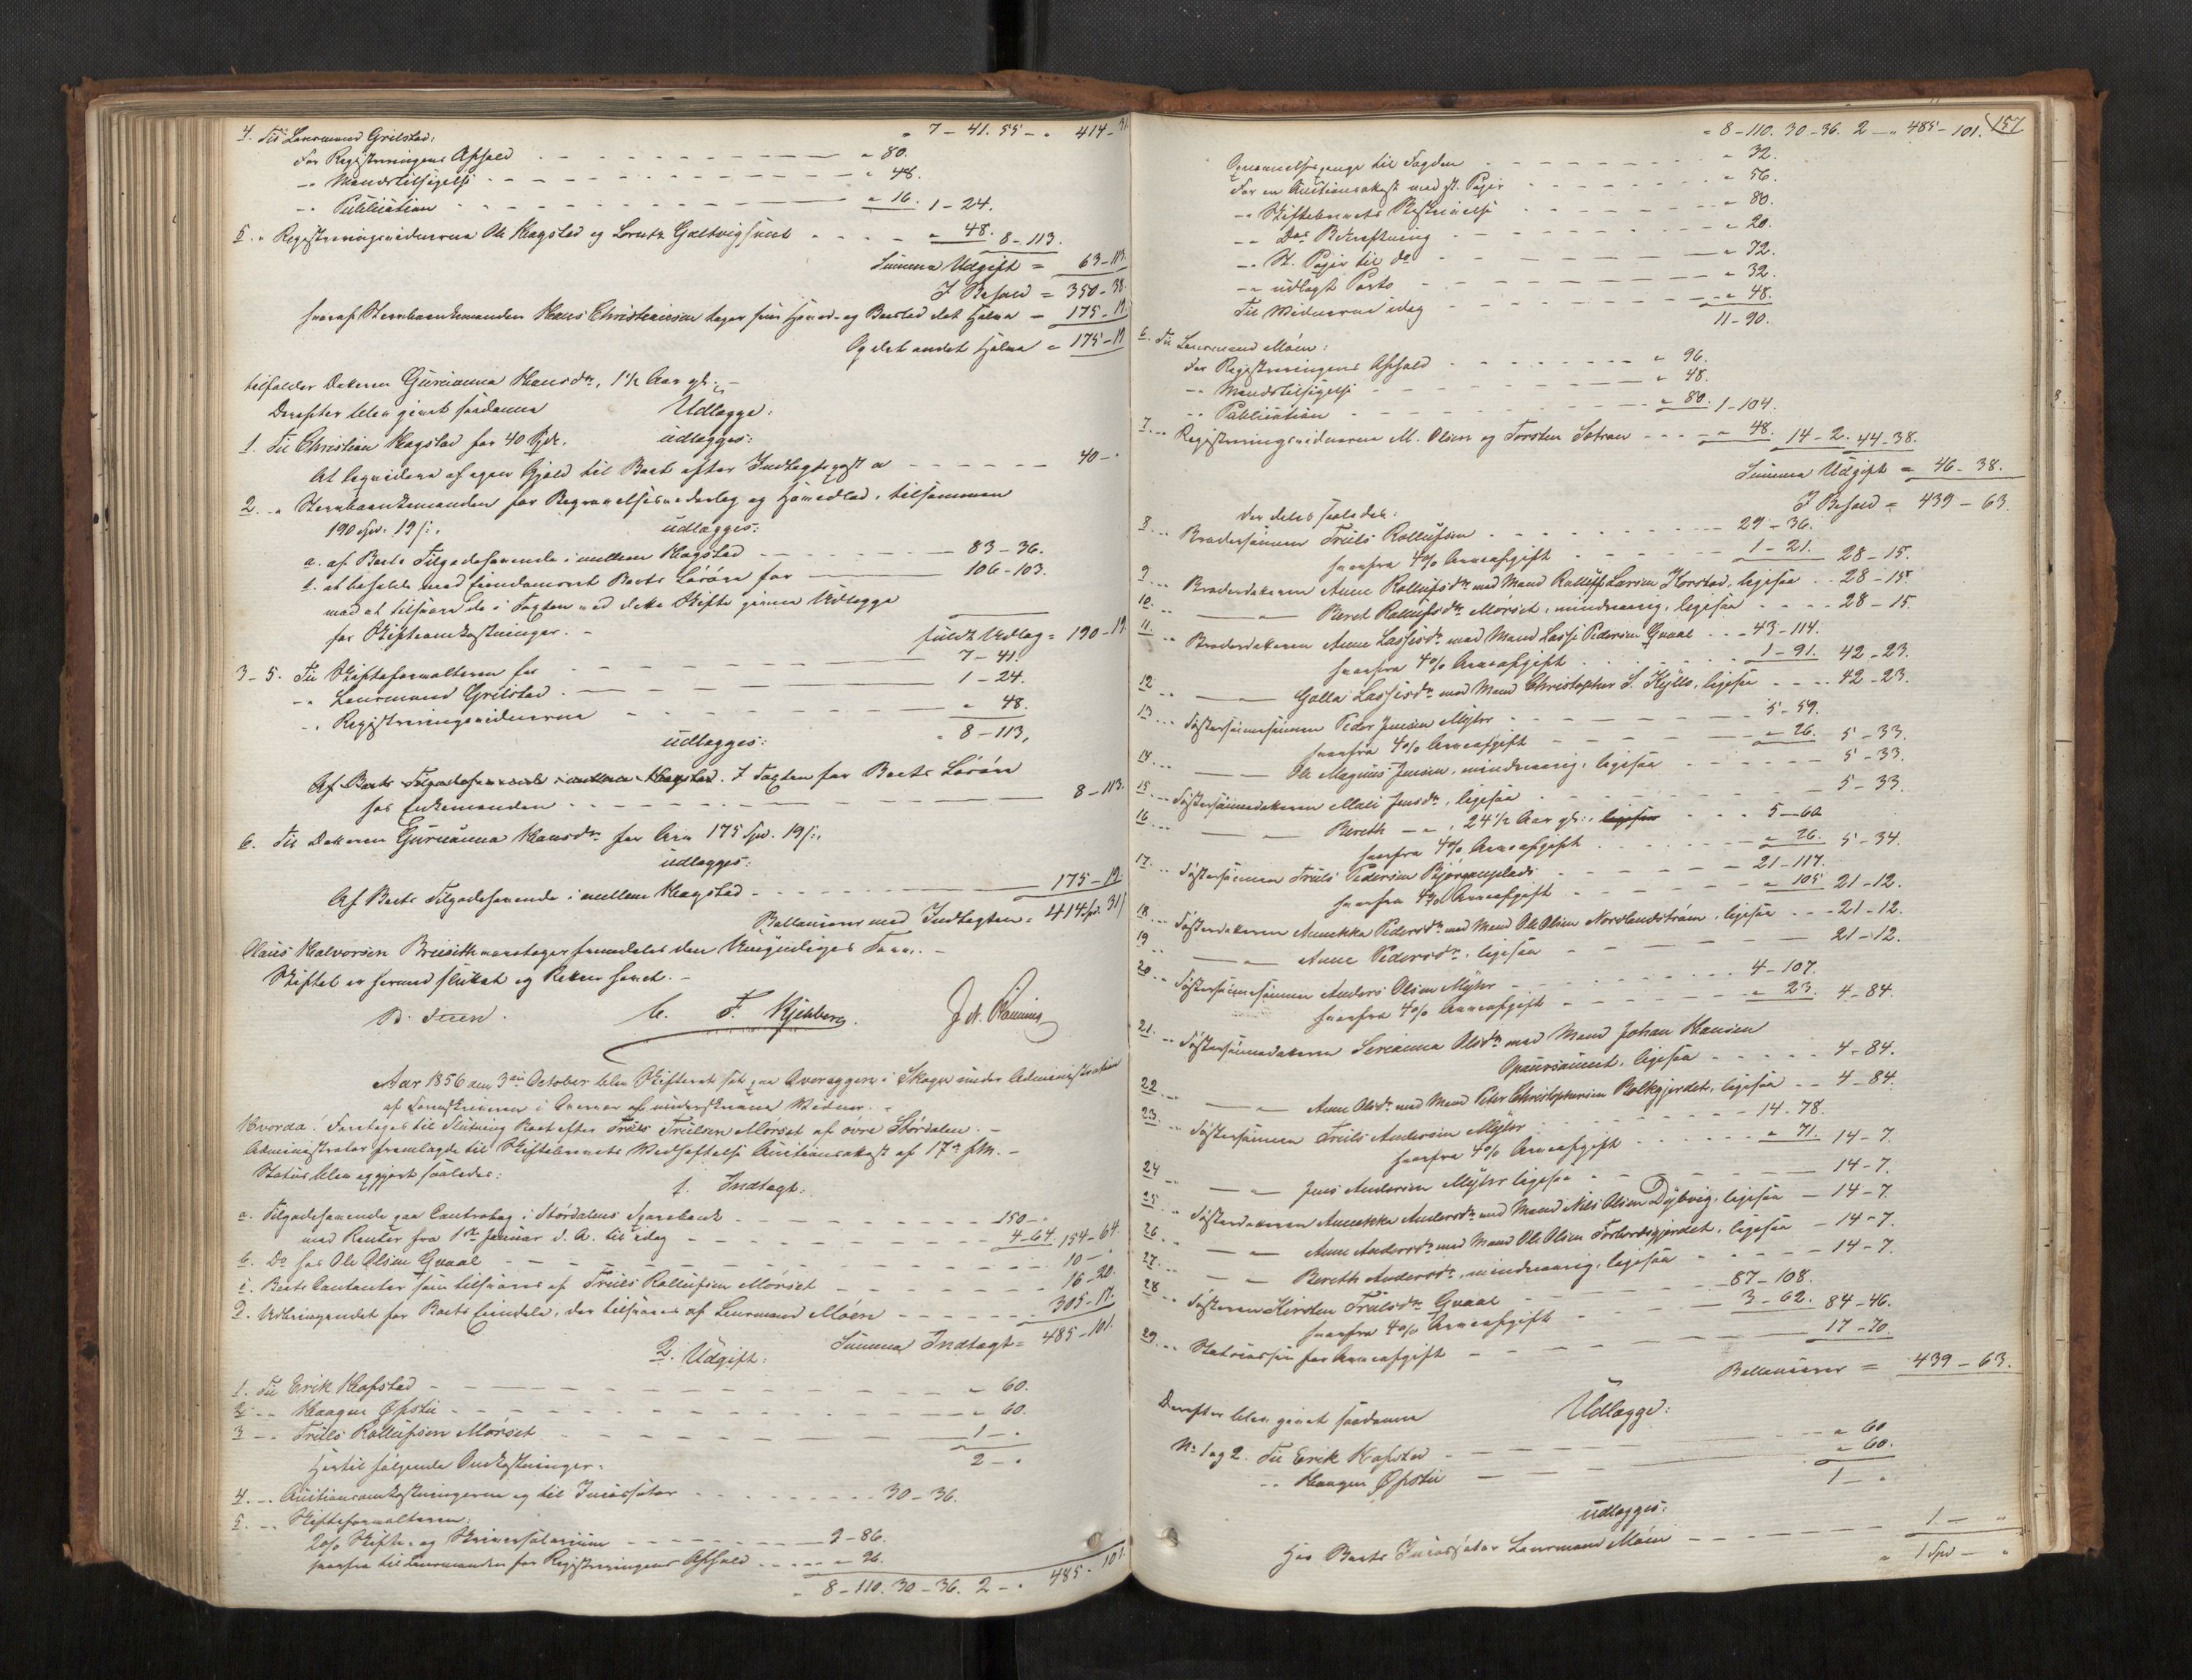 " 7 – 41. 55 – " 414 – 31
4. Til Lensmand Grilstad:
For Registreringens Afhold " 80.
–" Mandstilsigelse " 48.
–" Publication " 16. 1 – 24.
5. " Registreringsvidnerne Ole Hagstad og Lorntz " 48. 8 – 113.
Summa Udgift = 63 – 113.
I Behold = 350 – 38.
hvoraf Stervboenkemanden Hans Christiansen tager sin Hoved- og Boeslod det halve – 175 – 19
Og det andet Halve = 175 – 19
tilfalder Datteren Gurianna Hansdr., 1½ Aar gl: –
Derefter blev gjort saadanne Udlægge:
1. Til Christian Hagstad for 40 Spdr. udlægges:
At liqvidere af egen Gjæld til Boet efter Indtægtspost a 40 – "
2. " Stervboenkemanden for Begravelsesvederlag og Hovedlod, tilsammen
190 Spd. 19 s: udlægges:
a. af Boets Tilgodehavende i mellem Hagstad 83 – 36.
b. at beholde med Eiendomsret Boets Løsøre for 106 – 103.
mod at tilsvare de i Fragten ved dette Skifte gjorte Udlægge
for Skifteomkostninger. –
fuldt Udlæg = 190 – 19
3 – 5. Til Skifteforvalteren for 7 – 41.
–" Lensmand Grilstad 1 – 24.
–" Registreringsvidnerne " 48.
udlægges: " 8 – 113.
Af Boets Tilgodehavende i mellem Hagstad. I Fragten for Boets Løsøre
hos Enkemanden 8 – 113.
6. Til Datteren Gurianna Hansdr. for Arv 175 Spd. 19 s:
udlægges:
Af Boets Tilgodehavende i mellem Hagstad 175 – 19
Ballancerer med Indtægten = 414 Spd. 31
Claus Halvorsen Bruseth modtager fremdeles den Umyndiges Tarv. –
Skiftet er hermed sluttet og Retten hævet. –
C. F. Kjelberg.
Aar 1856 den 3die October blev Skifteret sat paa Averøggen i Skogn under Administration
af Sorenskriveren i Overvær af underskrevne Vidner. –
Hvorda: Foretoges til Slutning Boet efter Truls Trulsen Morset af øvre Størdalen. –
Administrator fremlagde til Skiftebrevets Vedheftelse Auctionsakt af 17de f.M. –
Status blev opgjort saaledes:
1. Indtægt:
a. Tilgodehavende paa Contrabog i Størdalens Sparebank 150 – "
med Renter fra 1ste Januar d. A. til idag 4 – 64. 154 – 64.
b. Do hos Ole Olsen Gvaal 10 – "
c. Boets Contanter som tilsvares af Truls Rollufsen Morset 16 – 20.
d. Udbringendet for Boets Eiendele, der tilsvares af Lensmand Moen 305 – 17.
Summa Indtægt = 485 – 101.
2. Udgift:
1. Til Erik Hofstad " 60.
2 –" Haagen Øfstie " 60.
3 –" Truls Rollufsen Morset 1 – "
2 – "
Hertil følgende Omkostninger:
4. –" Auctionsomkostningerne og til Incassator 30 – 36.
5. –" Skifteforvalteren:
2% Skifte- og Skriversalarium 9 – 86.
hvorfra til Lensmanden for Registreringens Afhold " 96.
" 8 – 110. 30 – 36. 2 – " 485 – 101.
157.
" 8 – 110. 30 – 36. 2 – " 485 – 101.
Opnævnelsespenge til Fogden " 32.
For en Auctionsakt med st. Papir " 56.
–" Skiftebrevets Beskrivelse " 80.
–" Dets Bekræftning " 20.
–" St. Papir til do " 72.
–" udlagt Porto " 32.
Til Vidnerne idag " 48.
11 – 90.
6. Til Lensmand Moen:
For Registreringens Afhold " 96.
–" Mandstilsigelse " 48.
–" Publication " 80. 1 – 104.
7. –" Registreringsvidnerne M. Olsen og Torsten Sætran " 48. 14 – 2. 44 – 38.
Summa Udgift = 46 – 38.
I Behold = 439 – 63.
der deles saaledes:
8 –" Brodersønnen Truls Rollufsen 29 – 36.
hvorfra 4% Arveafgift 1 – 21. 28 – 15.
9 –" Broderdatteren Anne Rollufsdr. med Mand Rolluf Larsen Korstad, ligesaa 28 – 15.
10. –" Beret Rollufsdr. Morset, mindreaarig, ligesaa 28 – 15.
11. –" Broderdatteren Anne Lassesdr. med Mand Lasse Pedersen Gvaal 43 – 114.
hvorfra 4% Arveafgift 1 – 91. 42 – 23.
12 –" Golla Lassesdr. med Mand Christopher S. Hyllo, ligesaa 42 – 23.
13 –" Søstersønnesønnen Peder Jensen Myhr 5 – 59.
hvorfra 4% Arveafgift " 26. 5 – 33.
14 –" Ole Magnus Jensen, mindreaarig, ligesaa 5 – 33.
15 –" Søstersønnedatteren Mali Jensdr., ligesaa 5 – 33.
16 –" Bereth –", 24½ Aar gl:, ligesaa 5 – 60
hvorfra 4% Arveafgift " 26. 5 – 34.
17. –" Søstersønnen Truls Pedersen Bjørganplads 21 – 117.
hvorfra 4% Arveafgift " 105 21 – 12.
18 –" Søsterdatteren Annekka Pedersdr. med Mand Ole Olsen Nordlandstrøen, ligesaa 21 – 12.
19 –" Anne Pedersdr., ligesaa 21 – 12.
20 –" Søstersønnesønnen Anders Olsen Myhr 4 – 107.
hvorfra 4% Arveafgift " 23. 4 – 84.
21. –" Søstersønnedatteren Serianna Olsdr. med Mand Johan Hansen
ligesaa 4 – 84.
22 –" Anne Olsdr. med Mand Peter Christophersen Balkgjerdet, ligesaa 4 – 84.
23. –" Søstersønnen Truls Andersen Myhr 14 – 78.
hvorfra 4% Arveafgift " 71. 14 – 7.
24 –" Jens Andersen Myhr ligesaa 14 – 7.
25. –" Søsterdatteren Annekka Andersdr. med Mand Nils Olsen Dybvig, ligesaa 14 – 7.
26. –" Anne Andersdr. med Mand Ole Olsen Forbordsgjerdet, ligesaa 14 – 7.
27. –" Bereth Andersdr., mindreaarig, ligesaa 14 – 7.
28 –" Søsteren Kirsten Trulsdr. Gvaal 87 – 108.
hvorfra 4% Arveafgift 3 – 62. 84 – 46.
29. –" Statscassen for Arveafgift 17 – 70.
Ballancerer = 439 – 63.
Derefter blev gjort saadanne Udlægge:
No 1 og 2. Til Erik Hofstad " 60
–" Haagen Øfstie " 60.
1 – "
udlægges:
Hos Boets Incassator Lensmand Moen 1 – "
" 1 Spd – "